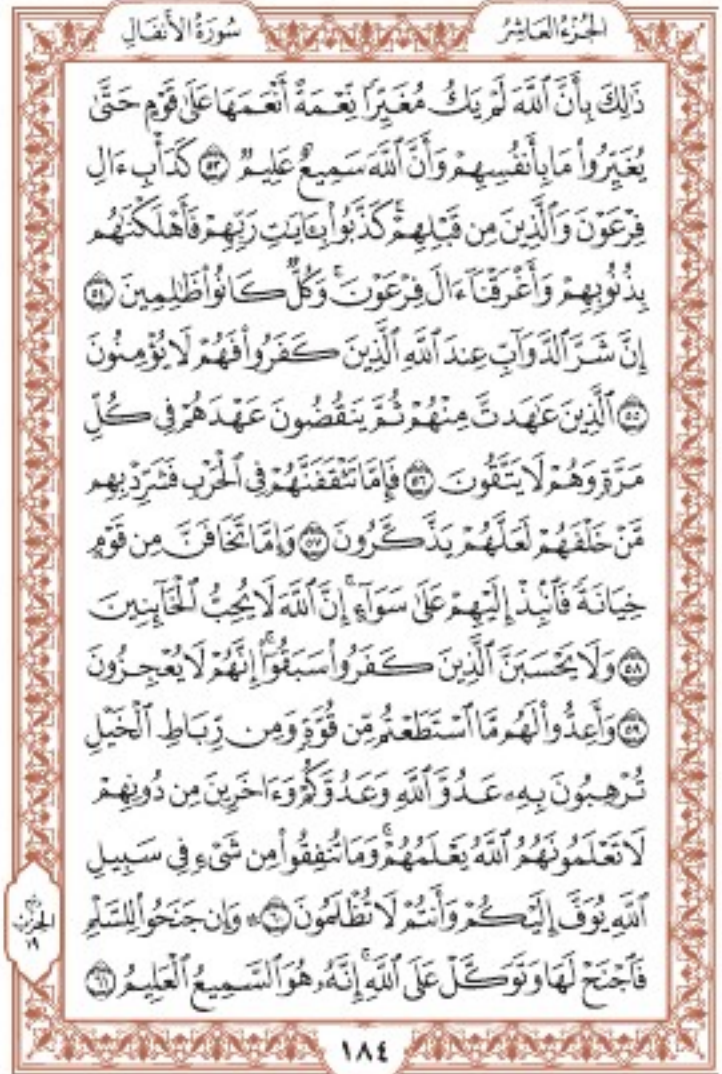 الجزء العاشر
سورة الأنفال
ذَٰلِكَ بِأَنَّ ٱللَّهَ لَمْ يَكُ مُغَيِّرًا نِّعْمَةً أَنْعَمَهَا عَلَىٰ قَوْمٍ حَتَّىٰ
يُغَيِّرُوا۟ مَا بِأَنفُسِهِمْ وَأَنَّ ٱللَّهَ سَمِيعٌ عَلِيمٌ ٥٣ كَدَأْبِ ءَالِ
فِرْعَوْنَ وَٱلَّذِينَ مِن قَبْلِهِمْ ۚ كَذَّبُوا۟ بِـَٔايَـٰتِ رَبِّهِمْ فَأَهْلَكْنَـٰهُم
بِذُنُوبِهِمْ وَأَغْرَقْنَآ ءَالَ فِرْعَوْنَ ۚ وَكُلٌّ كَانُوا۟ ظَـٰلِمِينَ ٥٤
إِنَّ شَرَّ ٱلدَّوَآبِّ عِندَ ٱللَّهِ ٱلَّذِينَ كَفَرُوا۟ فَهُمْ لَا يُؤْمِنُونَ
٥٥ ٱلَّذِينَ عَـٰهَدتَّ مِنْهُمْ ثُمَّ يَنقُضُونَ عَهْدَهُمْ فِى كُلِّ
مَرَّةٍ وَهُمْ لَا يَتَّقُونَ ٥٦ فَإِمَّا تَثْقَفَنَّهُمْ فِى ٱلْحَرْبِ فَشَرِّدْ بِهِم
مَّنْ خَلْفَهُمْ لَعَلَّهُمْ يَذَّكَّرُونَ ٥٧ وَإِمَّا تَخَافَنَّ مِن قَوْمٍ
خِيَانَةً فَٱنۢبِذْ إِلَيْهِمْ عَلَىٰ سَوَآءٍ ۚ إِنَّ ٱللَّهَ لَا يُحِبُّ ٱلْخَآئِنِينَ
٥٨ وَلَا يَحْسَبَنَّ ٱلَّذِينَ كَفَرُوا۟ سَبَقُوٓا۟ ۚ إِنَّهُمْ لَا يُعْجِزُونَ
٥٩ وَأَعِدُّوا۟ لَهُم مَّا ٱسْتَطَعْتُم مِّن قُوَّةٍ وَمِن رِّبَاطِ ٱلْخَيْلِ
تُرْهِبُونَ بِهِۦ عَدُوَّ ٱللَّهِ وَعَدُوَّكُمْ وَءَاخَرِينَ مِن دُونِهِمْ
لَا تَعْلَمُونَهُمُ ٱللَّهُ يَعْلَمُهُمْ ۚ وَمَا تُنفِقُوا۟ مِن شَىْءٍ فِى سَبِيلِ
ٱللَّهِ يُوَفَّ إِلَيْكُمْ وَأَنتُمْ لَا تُظْلَمُونَ ٦٠ ۞ وَإِن جَنَحُوا۟ لِلسَّلْمِ
فَٱجْنَحْ لَهَا وَتَوَكَّلْ عَلَى ٱللَّهِ ۚ إِنَّهُۥ هُوَ ٱلسَّمِيعُ ٱلْعَلِيمُ ٦١
ربع
الحزب
١٩
١٨٤